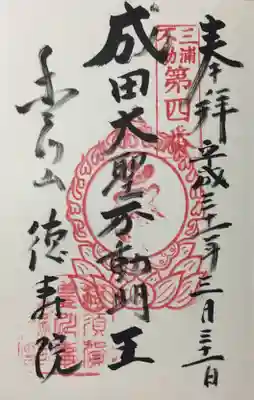 奉拝 平成三十一年三月三十一日
三浦
不動
第四
成田大聖不動明王
徳寿院